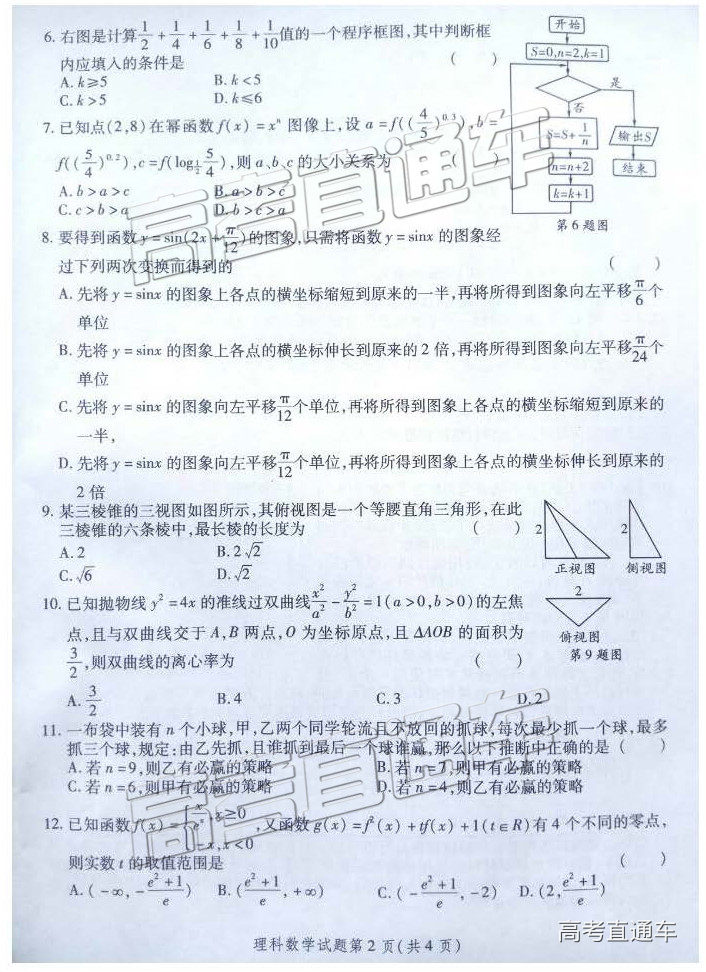 6. 右图是计算1/2 + 1/4 + 1/6 + 1/8 + 1/10值的一个程序框图,其中判断框
内应填入的条件是 ( )
A. k≥5 B. k<5
C. k>5 D. k≤6
开始
S=0,n=2,k=1
是
否
S=S+1/n
输出S
n=n+2
结束
k=k+1
第6题图
7. 已知点(2,8)在幂函数 f(x) = xⁿ 图像上,设 a = f((4/5)^0.3), b =
f((5/4)^0.2), c = f(log_{1/2} 5/4),则 a,b,c 的大小关系为 ( )
A. b>a>c B. a>b>c
C. c>b>a D. b>c>a
8. 要得到函数 y = sin(2x + π/12)的图象,只需将函数 y = sinx 的图象经
过下列两次变换而得到的 ( )
A. 先将 y = sinx 的图象上各点的横坐标缩短到原来的一半,再将所得到图象向左平移π/6个
单位
B. 先将 y = sinx 的图象上各点的横坐标伸长到原来的 2 倍,再将所得到图象向左平移π/24个
单位
C. 先将 y = sinx 的图象向左平移π/12个单位,再将所得到图象上各点的横坐标缩短到原来的
一半,
D. 先将 y = sinx 的图象向左平移π/12个单位,再将所得到图象上各点的横坐标伸长到原来的
2 倍
9. 某三棱锥的三视图如图所示,其俯视图是一个等腰直角三角形,在此
三棱锥的六条棱中,最长棱的长度为 ( )
A. 2 B. 2√2
C. √6 D. √2
2
2
正视图 侧视图
2
俯视图
第9题图
10. 已知抛物线 y² = 4x 的准线过双曲线x²/a² − y²/b² = 1(a>0,b>0)的左焦
点,且与双曲线交于 A,B 两点,O 为坐标原点,且 ΔAOB 的面积为
3/2,则双曲线的离心率为 ( )
A. 3/2 B. 4 C. 3 D. 2
11. 一布袋中装有 n 个小球,甲,乙两个同学轮流且不放回的抓球,每次最少抓一个球,最多
抓三个球,规定:由乙先抓,且谁抓到最后一个球谁赢,那么以下推断中正确的是 ( )
A. 若 n = 9,则乙有必赢的策略 B. 若 n = 7,则甲有必赢的策略
C. 若 n = 6,则甲有必赢的策略 D. 若 n = 4,则乙有必赢的策略
12. 已知函数 f(x) = { x/eˣ, x≥0
−x, x<0 ,又函数 g(x) = f²(x) + tf(x) + 1(t∈R)有 4 个不同的零点,
则实数 t 的取值范围是 ( )
A. (−∞, −(e²+1)/e) B. ((e²+1)/e, +∞) C. (−(e²+1)/e, −2) D. (2, (e²+1)/e)
理科数学试题第 2 页(共 4 页)
高考直通车
高考直通车
高考直通车